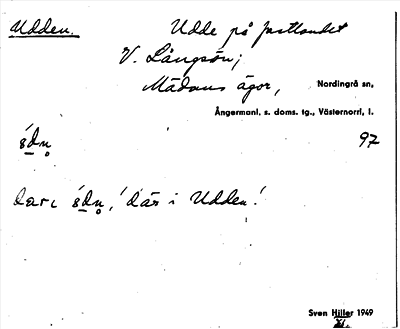 Udden. Udde på fastlandet
V. Långsön;
Mädans ägor, Nordingrå sn,
Ångermanl. s. doms. tg., Västernorrl. l.
97
i Udden!
Sven Hiller 1949